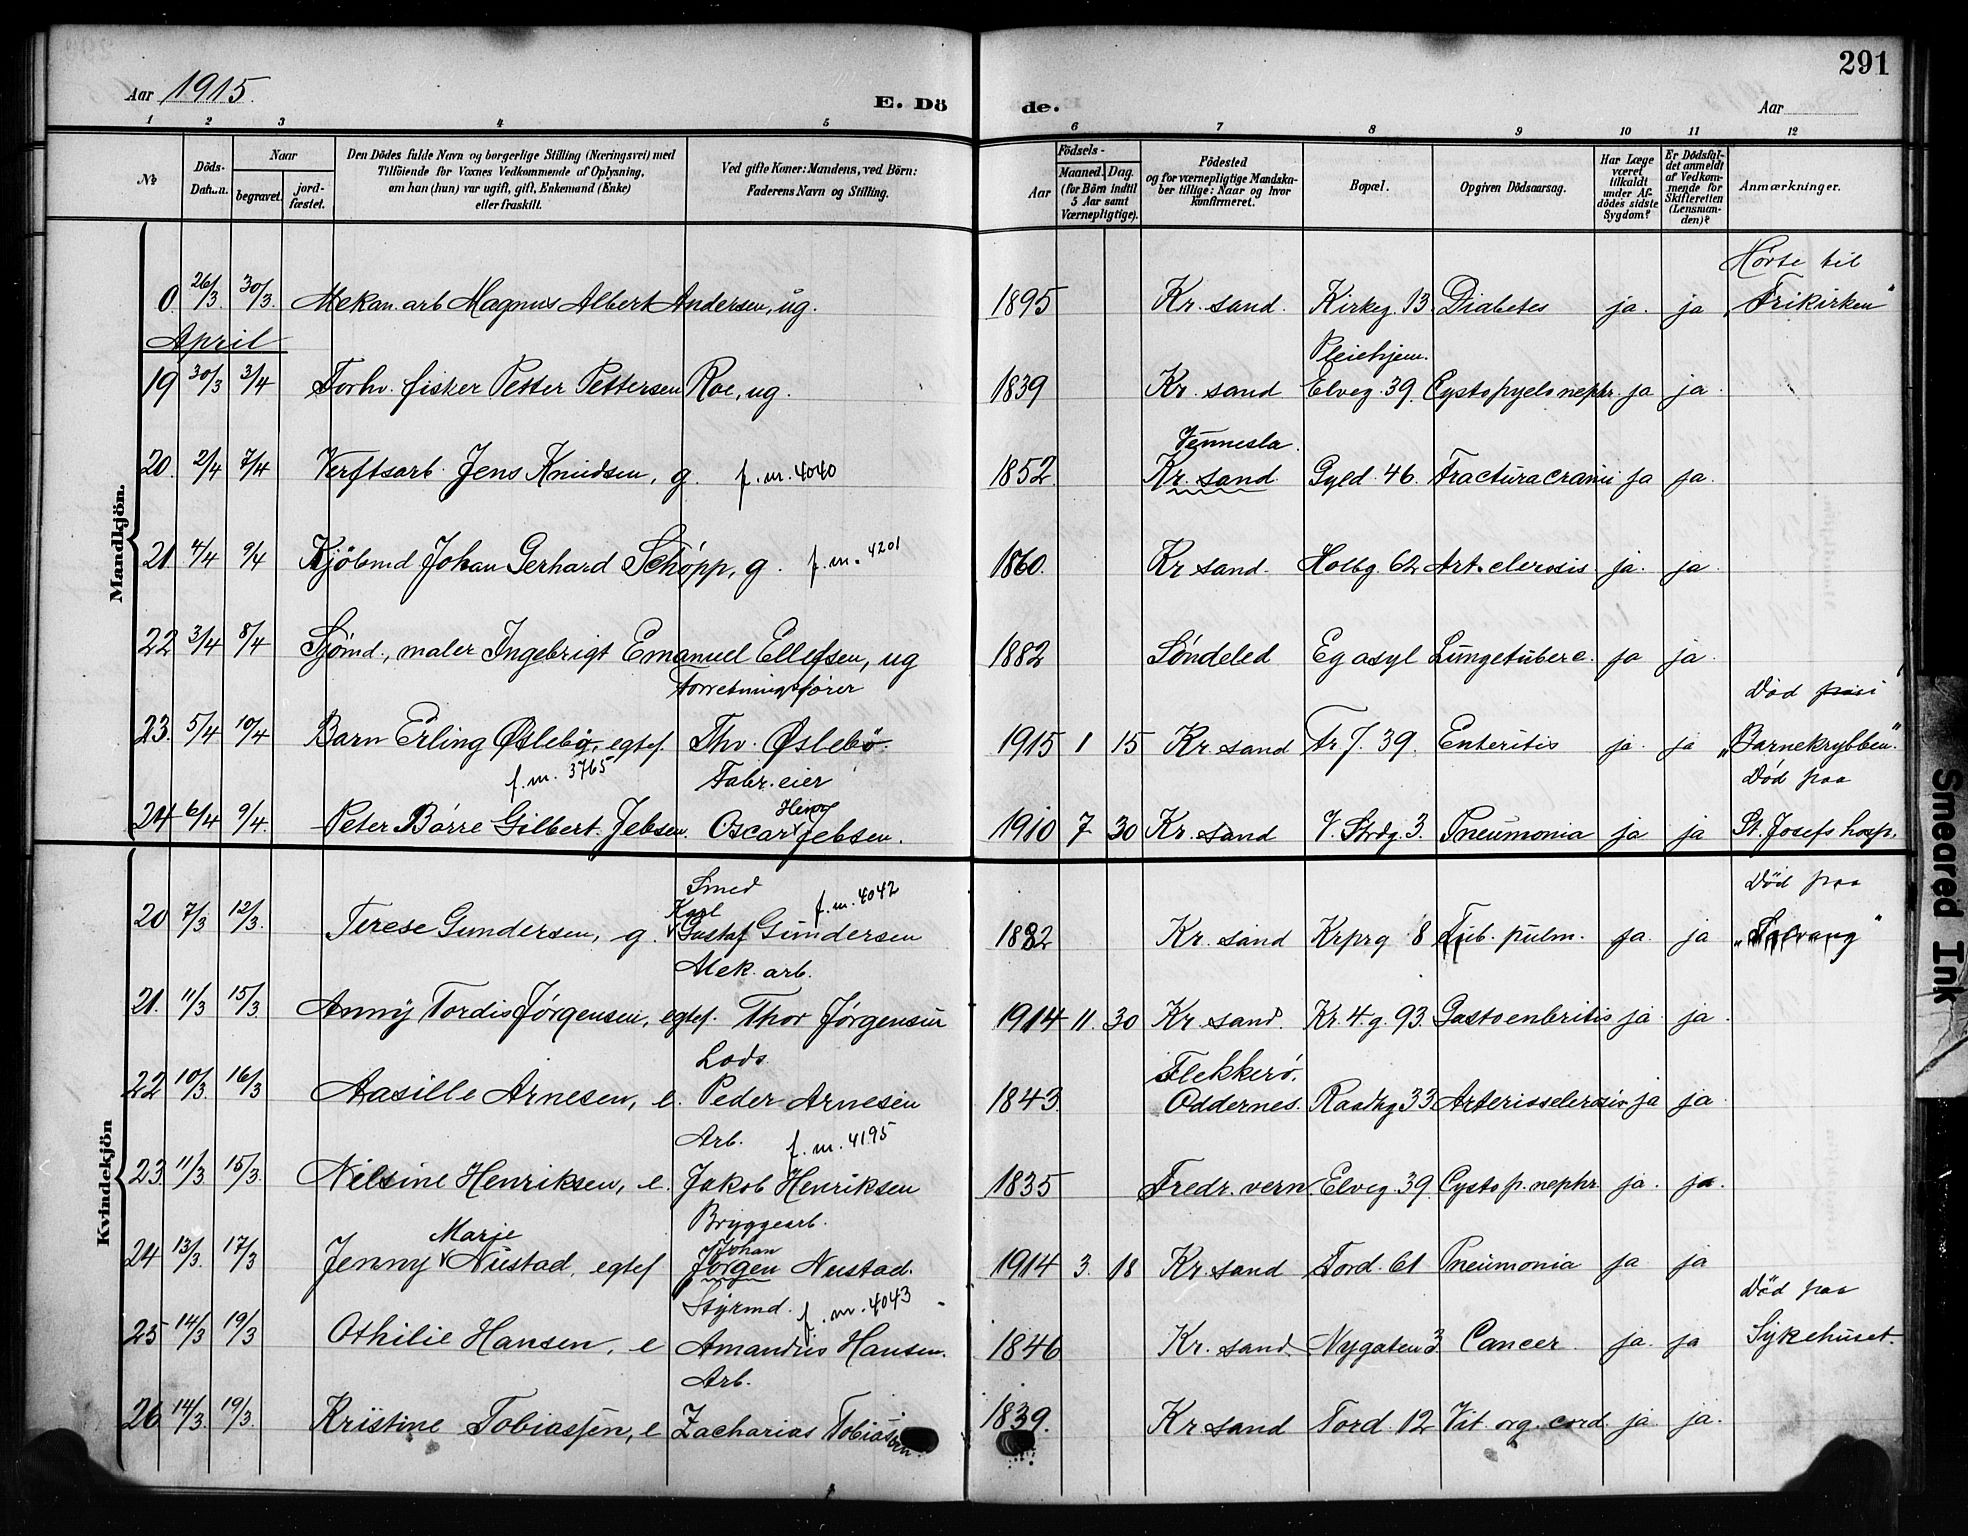 291
Aar 1915.
E. Dö de.
Aar
1 2 3 4 5 6 7 8 9 10 11 12
№
Döds-
Datum.
Naar
begravet.
jord-
fæstet.
Den Dödes fulde Navn og borgerlige Stilling (Næringsvei) med
Tilföiende for Voxnes Vedkommende af Oplysning,
om han (hun) var ugift, gift, Enkemand (Enke)
eller fraskilt.
Ved gifte Koner: Mandens, ved Börn:
Faderens Navn og Stilling.
Födsels-
Aar
Maaned. Dag.
(for Börn indtil
5 Aar samt
Værnepligtige).
Födested
og for værnepligtige Mandska-
ber tillige: Naar og hvor
konfirmeret.
Bopæl.
Opgiven Dödsaarsag.
Har Læge
været
tilkaldt
under Af-
dödes sidste
Sygdom?
Er Dödsfal-
det anmeldt
af Vedkom-
mende for
Skifteretten
(Lensman-
den)?
Anmærkninger.
Mandkjön.
Hørte til
0. 26/3. 30/3. Mekan. arb Magnus Albert Andersen, ug. 1895 Kr. sand. Kirkeg. 13. Diabetes ja. ja "Frikirken"
April
Pleiehjem.
19 30/3 3/4 Forhv. fisker Petter Pettersen Roe, ug. 1839 Kr. sand Elveg. 39. Cystopyelonephr. ja ja.
Vennesla.
20. 2/4 7/4 Verftsarb. Jens Knudsen, g. f. m. 4040 1852. Kr. sand. Gyld. 46. Fractura cranii ja ja.
21. 4/4 9/4 Kjöbmd Johan Gerhard Schöpp, g. f. m. 4201 1860. Kr sand. Holbg. 62 Art. clerosis ja. ja.
22 3/4 8/4 Sjömd., maler Ingebrigt Emanuel Ellefsen, ug 1882 Søndeled Eg asyl Lungetuberc. ja ja.
Forretningsfører
Død i
23. 5/4 10/4 Barn Erling Øslebø, egtef. Thv. Øslebø. 1915 1 15 Kr. sand Fr 7. 39. Enteritis ja. ja „Barnekrybben".
f. m. 3765
Fabr. eier
Død paa
Henry
24 6/4 9/4. Peter Börre Gilbert Jebsen. Oscar Jebsen. 1910 7 30 Kr. sand V. Strdg. 3. Pneumonia ja ja St. Josefs hosp.
Kvindekjön
Smed
Karl
f. m. 4042
Død paa
20 7/3. 12/3. Terese Gundersen, g. Gustaf Gundersen 1882 Kr. sand Krprg 8 Tub. pulm. ja. ja „Solvang"
Mek. arb.
21. 11/3 15/3. Anny Tordis Jørgensen, egtef. Thor Jørgensen 1914 11. 30 Kr. sand. Kr. 4. g. 93. Gastoenbritis ja ja.
Lods.
Flekkerö.
22 10/3. 16/3 Aasille Arnesen, e. Peder Arnesen 1843. Oddernes. Raadhg 33 Arteriosclerosis ja ja.
Arb. f. m. 4195
23. 11/3. 15/3. Nilsine Henriksen, e. Jakob Henriksen 1835 Fredr. vern. Elveg. 39. Cystop. nephr. ja. ja.
Bryggearb.
Marie
Johan
24 13/3. 17/3 Jenny Nustad, egtef Jörgen Nustad. 1914 3. 18 Kr. sand Tord. 61 Pneumonia ja ja
Styrmd. f. m. 4043
Død paa
25 14/3 19/3 Othilie Hansen, e Amandus Hansen. 1846 Kr. sand. Nygaten 3 Cancer. ja. ja Sykehuset.
Arb.
26 14/3. 19/3. Kristine Tobiassen, e Zacharias Tobiassen 1839. Kr sand Tord. 12 Vit. org. cord. ja ja.
Smeared Ink